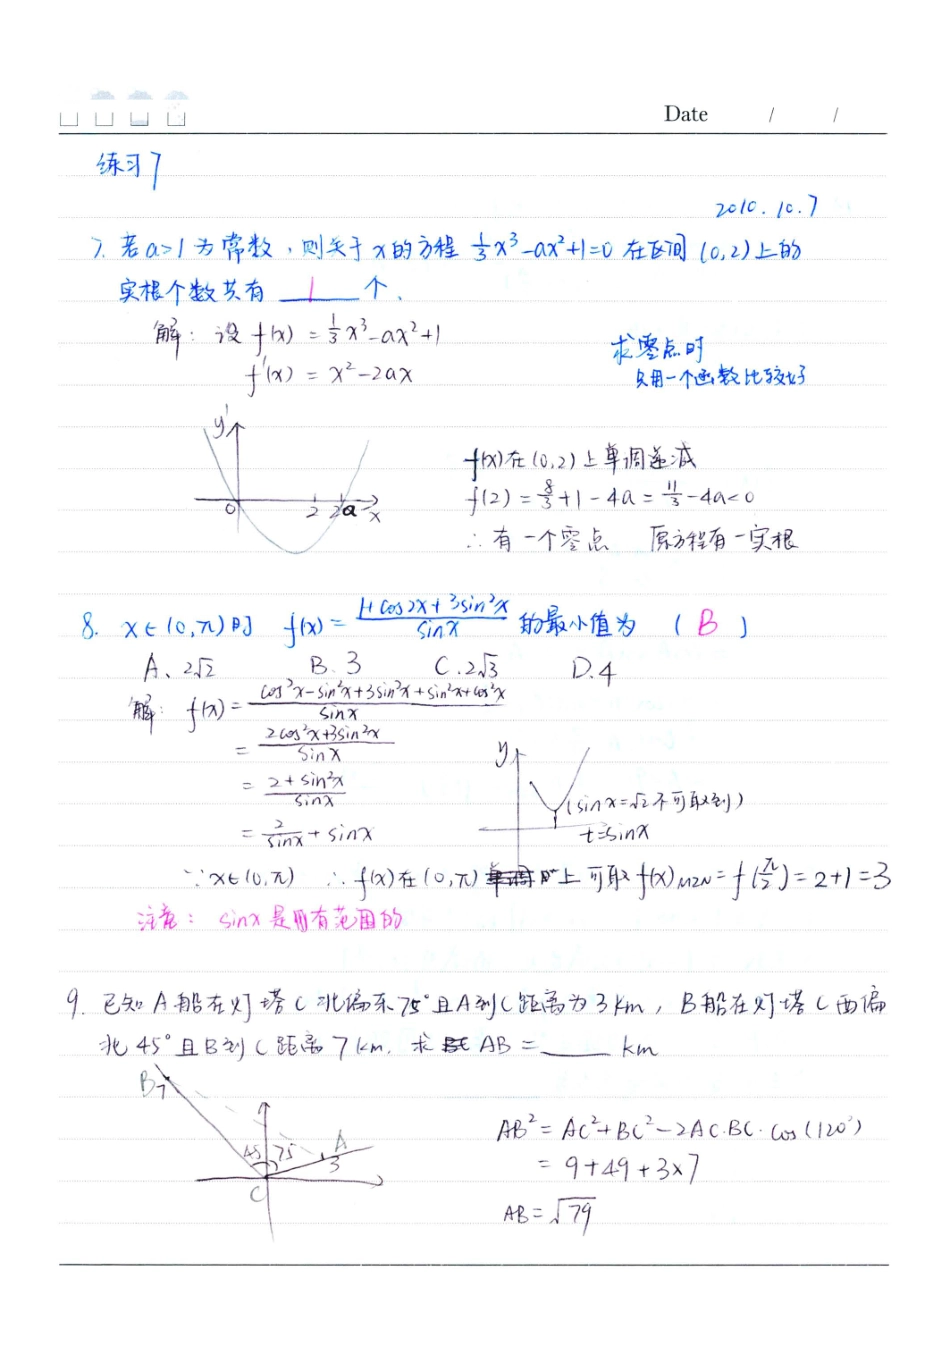 Date / /
练习7
2010.10.7
7. 若a>1为常数，则关于x的方程 1/3x³-ax²+1=0 在区间(0,2)上的
实根个数共有 1 个.
解：设f(x) = 1/3x³-ax²+1
f'(x) = x²-2ax
求零点时
只用一个函数比较好
y'
0 2 2a x
f(x)在(0,2)上单调递减
f(2) = 8/3+1-4a = 11/3-4a<0
∴有一个零点 原方程有一实根
8. x∈(0,π)时 f(x) = (1+cos2x+3sin²x)/sinx 的最小值为 (B)
A、2√2 B.3 C.2√3 D.4
解: f(x) = (cos²x-sin²x+3sin²x+sin²x+cos²x)/sinx
= (2cos²x+3sin²x)/sinx
= (2+sin²x)/sinx
= 2/sinx + sinx
y
(sinx=√2不可取到)
t=sinx
∵x∈(0,π) ∴f(x)在(0,π)上可取f(x)min=f(π/2)=2+1=3
注意：sinx是有范围的
9. 已知A船在灯塔C北偏东75°且A到C距离为3km，B船在灯塔C西偏
北45°且B到C距离7km. 求AB = ____ km
B 7
45 75 A
3
C
AB² = AC²+BC²-2AC·BC·cos(120°)
= 9+49+3×7
AB=√79